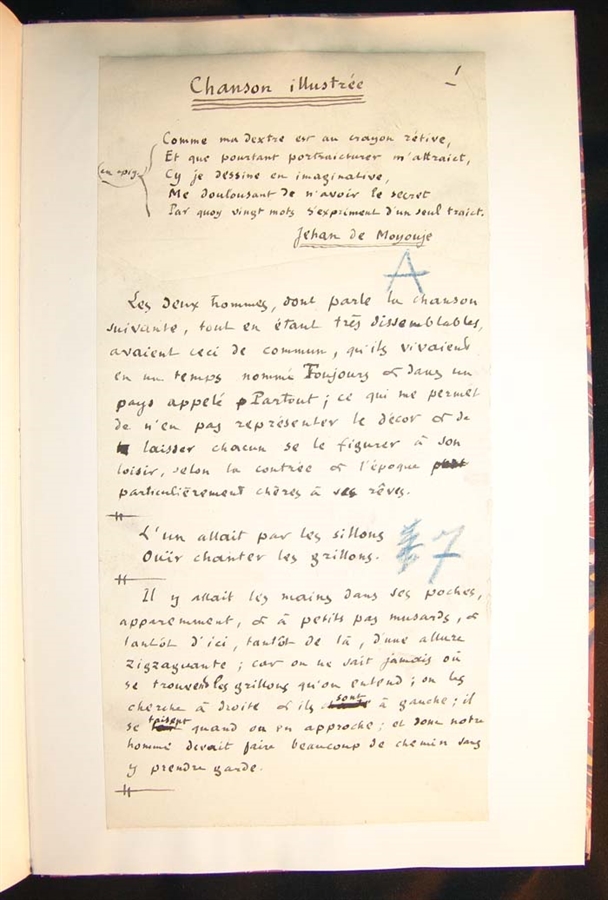 1
Chanson illustrée
en épig
Comme ma dextre est au crayon rétive,
Et que pourtant portraicturer m'attraict,
Cy je dessine en imaginative,
Me doulousant de n'avoir le secret
Par quoy vingt mots s'expriment d'un seul traict.
Jehan de Moyouje
A
Les deux hommes, dont parle la chanson
suivante, tout en étant très dissemblables,
avaient ceci de commun, qu'ils vivaient
en un temps nommé Toujours & dans un
pays appelé Partout ; ce qui me permet
de n'en pas représenter le décor & de
laisser chacun se le figurer à son
loisir, selon la contrée & l'époque
particulièrement chères à ses rêves.
L'un allait par les sillons
Ouïr chanter les grillons.
7
Il y allait les mains dans ses poches,
apparemment, & à petits pas musards, &
tantôt d'ici, tantôt de là, d'une allure
zigzaguante ; car on ne sait jamais où
se trouvent les grillons qu'on entend ; on les
cherche à droite & ils sont à gauche ; il
se taisent quand on en approche ; et donc notre
homme devait faire beaucoup de chemin sans
y prendre garde.